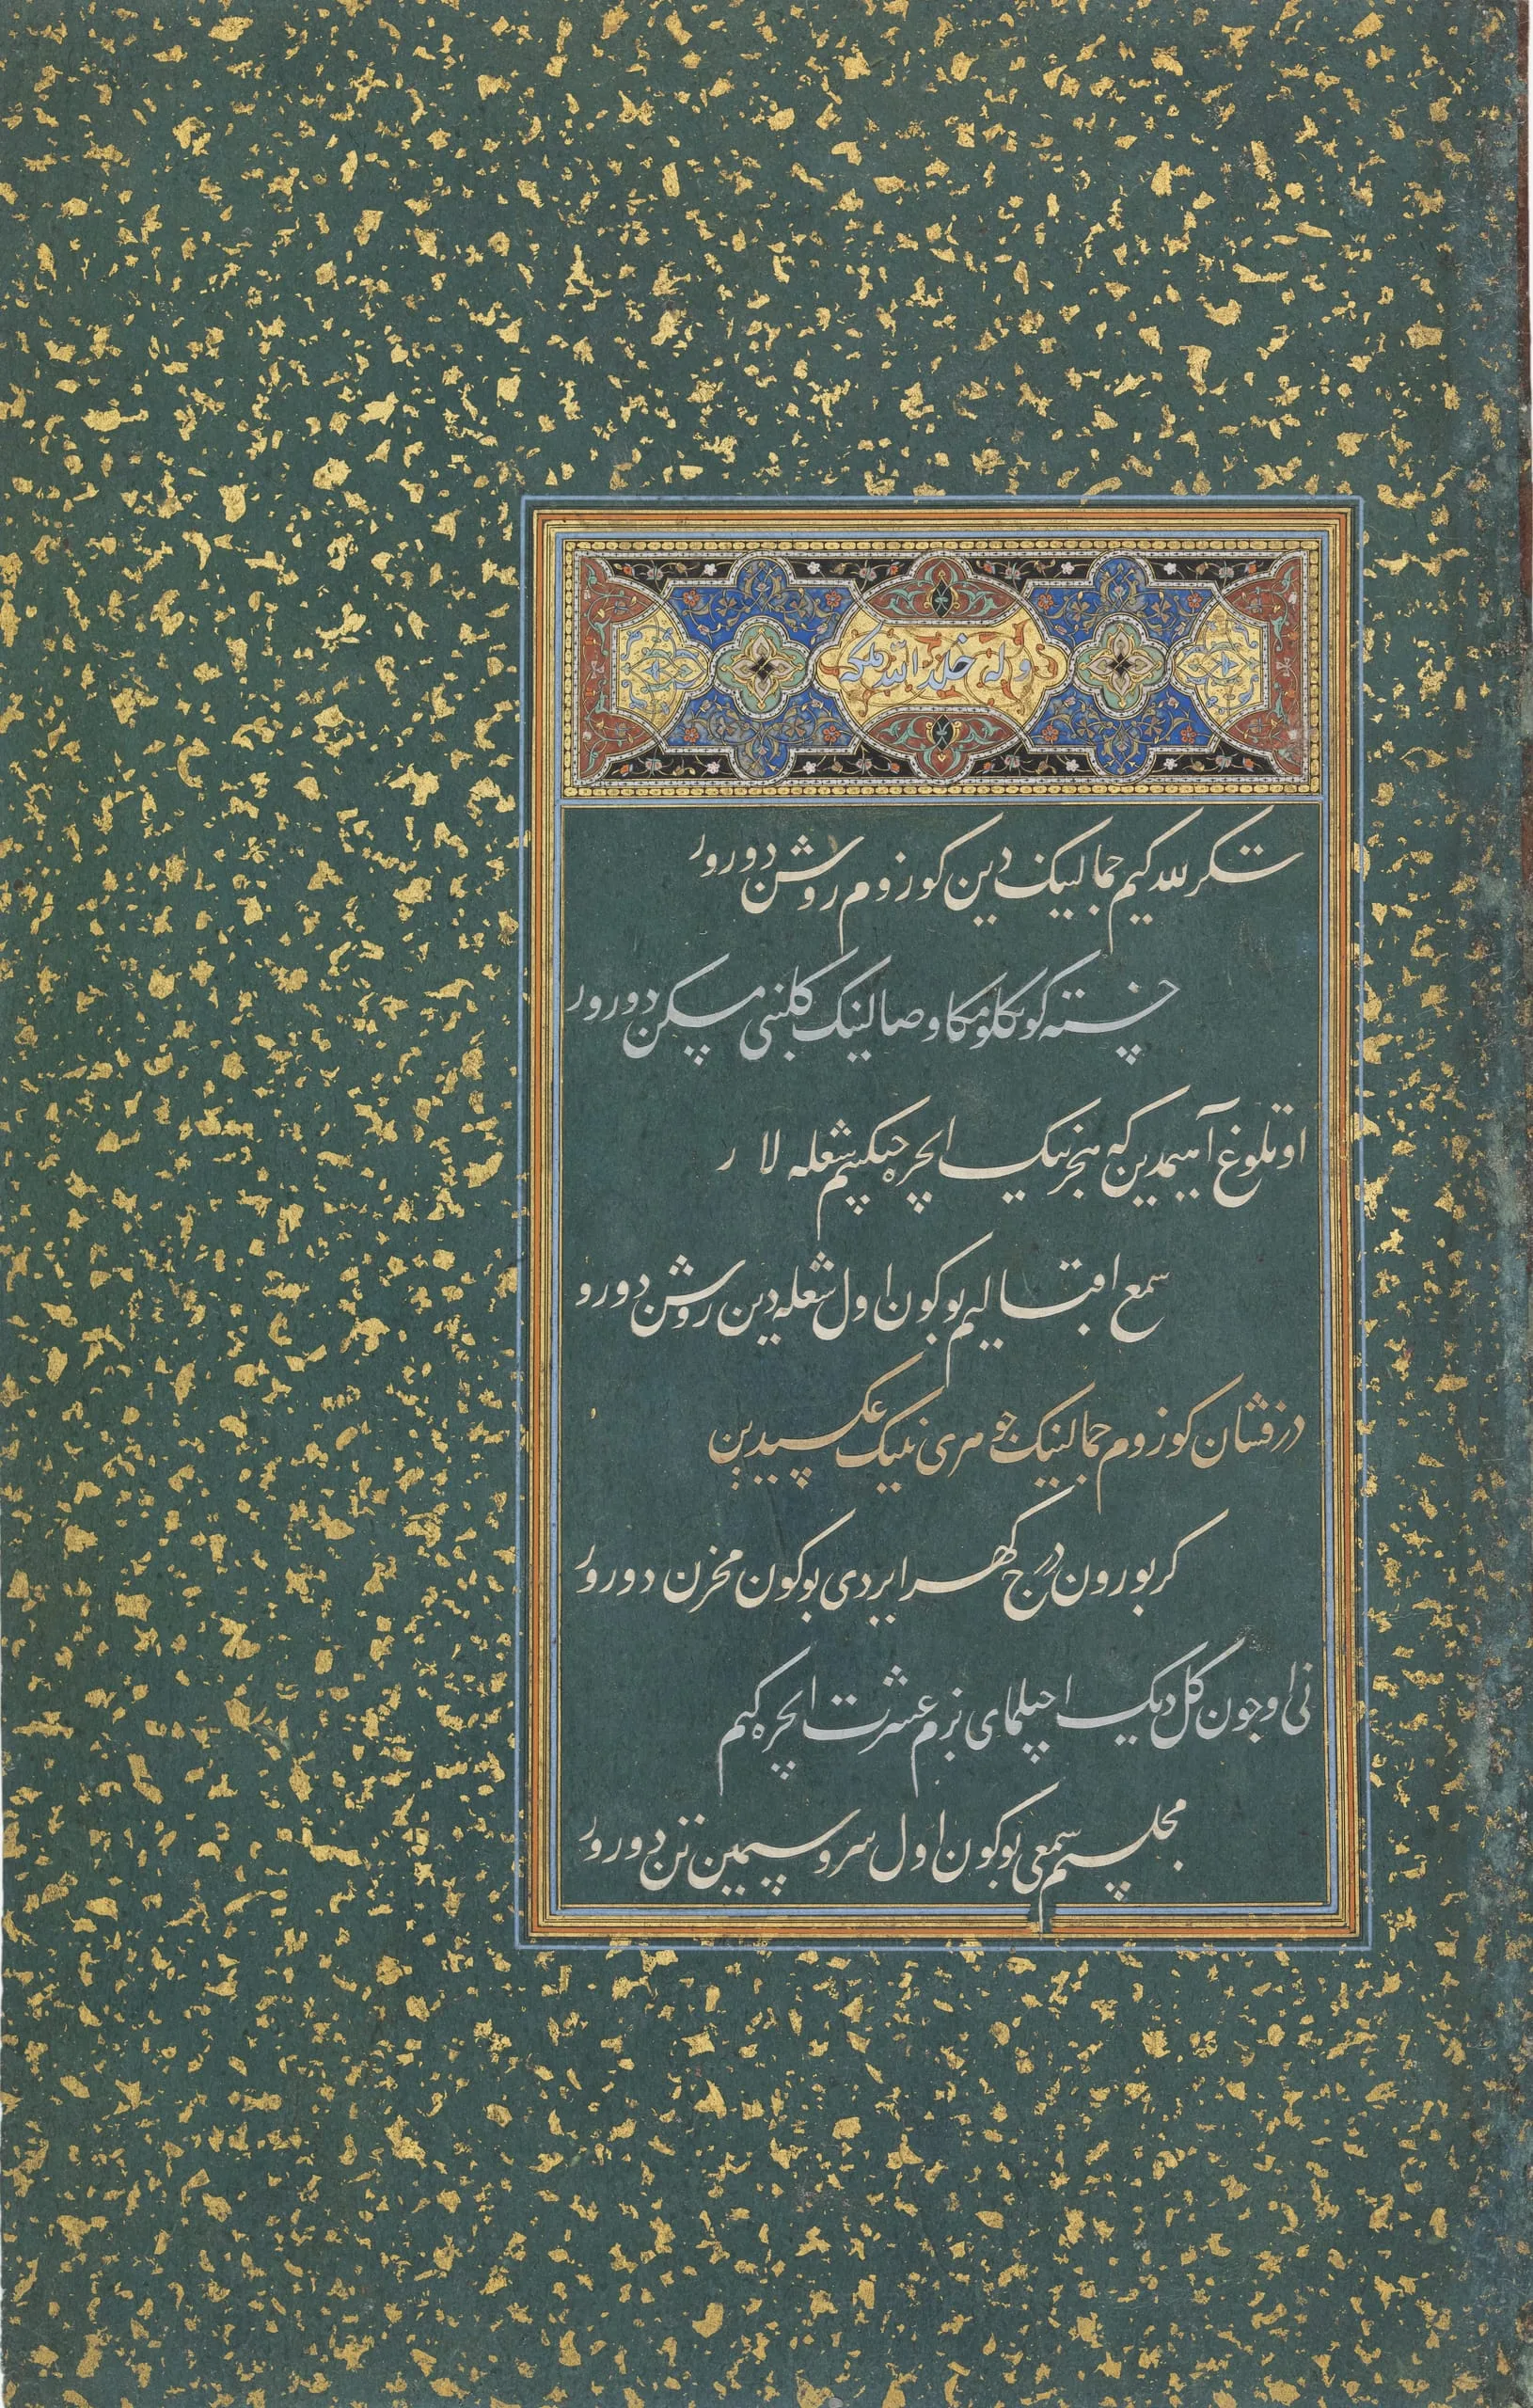 وله خلد الله ملکه
شکر لله کیم جمالینک دین کوزوم روشن دورور
خسته کونکلومکا وصالینک کلبنی مسکن دورور
اوتلوغ آهیمدین که هجرینک ایچره چیکتیم شعله لار
شمع اقبالیم بوکون اول شعله دین روشن دورو
درفشان کوزوم جمالینک جوهری نینک عکسیدین
کر بورون درج کهر ایردی بوکون مخزن دورور
نی اوچون کل دیک اچیلمای بزم عشرت ایچره کیم
مجلسیم شمعی بوکون اول سرو سیمین تن دورور